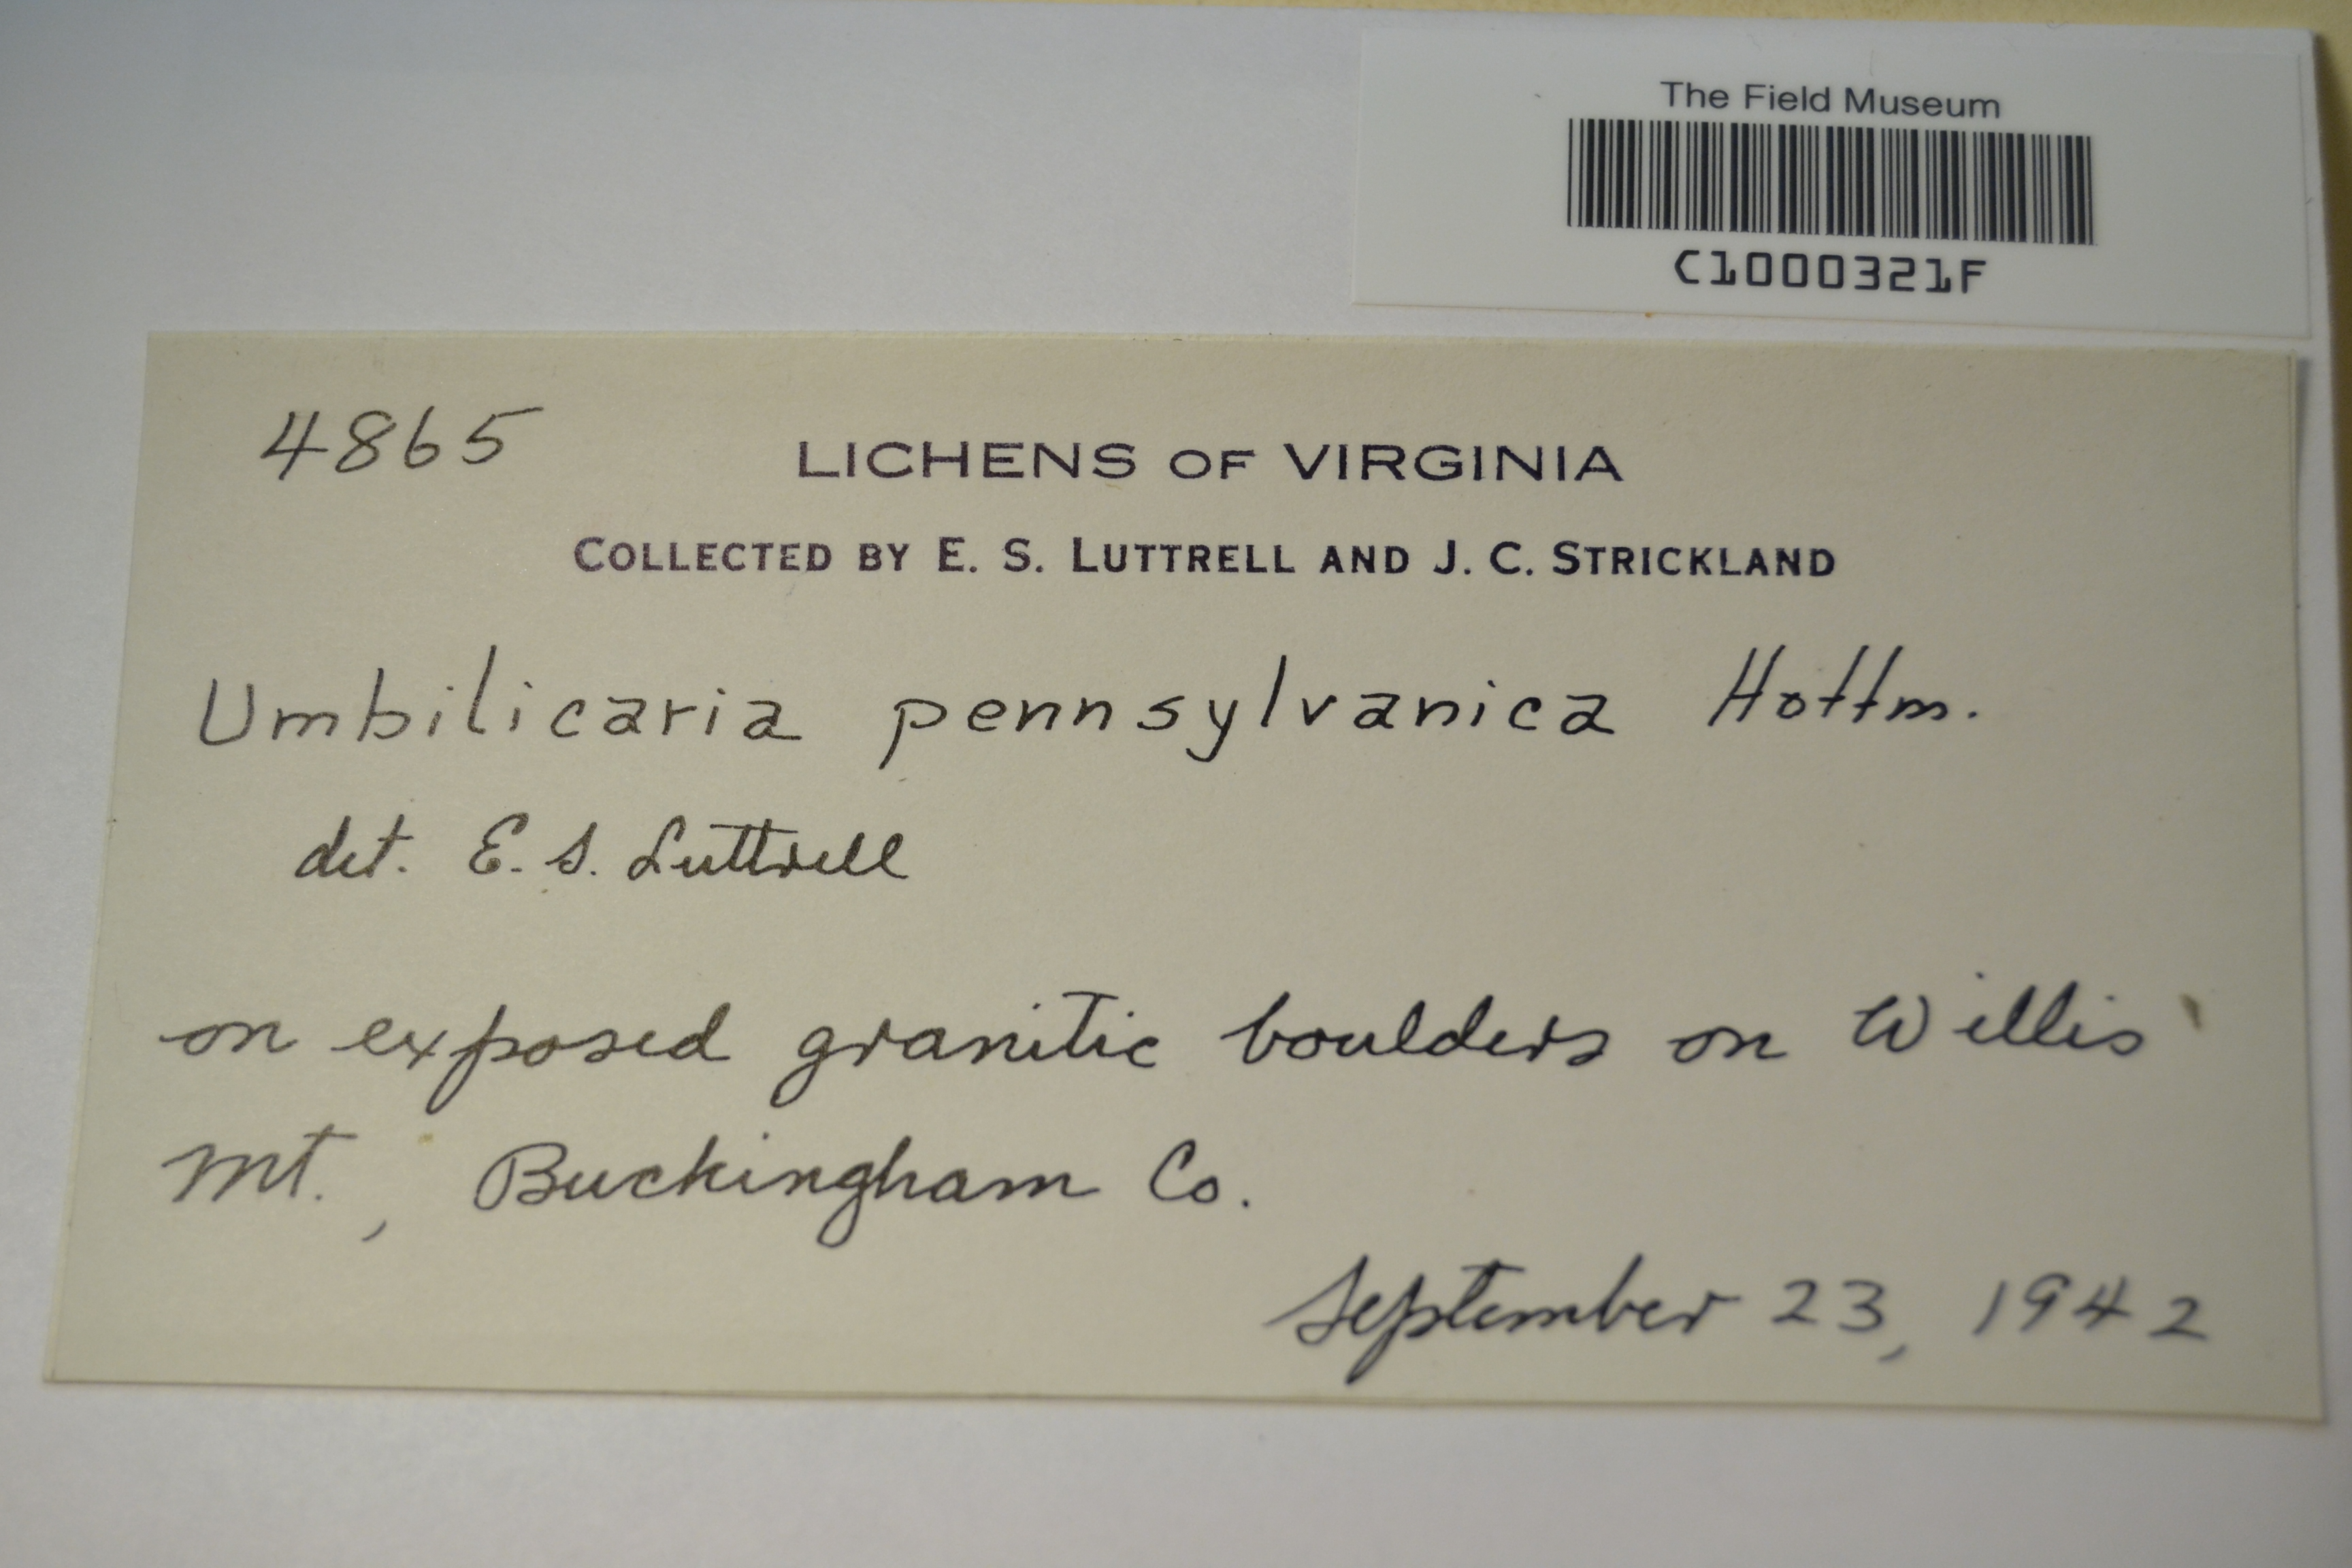 The Field Museum
C1000321F
4865
LICHENS OF VIRGINIA
COLLECTED BY E. S. LUTTRELL AND J. C. STRICKLAND
Umbilicaria pennsylvanica Hoffm.
det. E. S. Luttrell
on exposed granitic boulders on Willis
Mt., Buckingham Co.
September 23, 1942